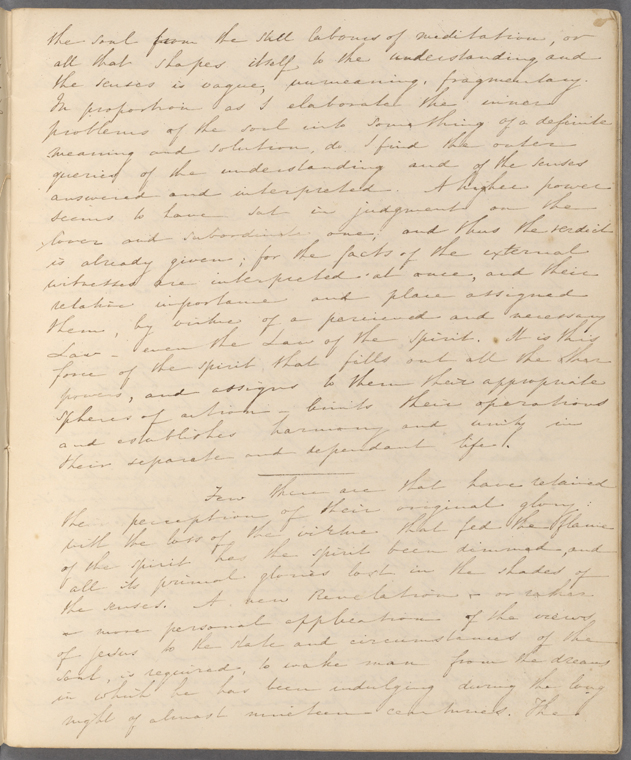 the soul from the still labours of meditation, or
all that shapes itself to the understanding and
the senses is vague, unmeaning, fragmentary.
In proportion as I elaborate the inner
problems of the soul into something of a definite
meaning and solution, do I find the outer
queries of the understanding and of the senses
answered and interpreted. A higher power
seems to have sat in judgment on the
lower and subordinate one, and thus the verdict
is already given; for the facts of the external
witness are interpreted at once, and their
relative importance and place assigned
them, by virtue of a perceived and necessary
Law – even the Law of the Spirit. It is this
force of the spirit that fills out all the other
powers, and assigns to them their appropriate
spheres of action – limits their operations
and establishes harmony and unity in
their separate and dependant life.
Few there are that have retained
the perception of their original glory:
with the loss of the virtue that fed the flame
of the spirit has the spirit been dimmed and
all its primal glories lost in the shades of
the senses. A new Revelation – or rather
a more personal application of the views
of Jesus to the state and circumstances of the
soul, is required, to wake man from the dreams
in which he has been indulging during the long
night of almost nineteen centuries. The